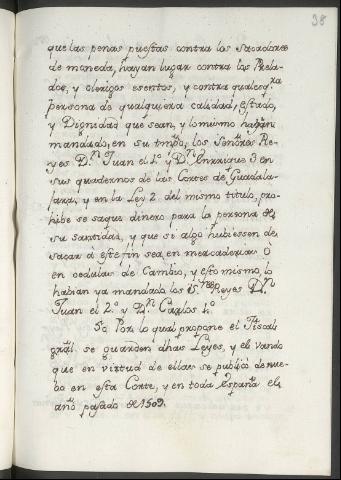 38
que las penas puestas contra los sacadores
de moneda, hayan lugar contra los Prela-
dos, y clerigos esentos, y contra qualesqra
persona de qualquiera calidad, estado,
y Dignidad que sean, y lo mismo habian
mandado, en su tmpo, los Señores Re-
yes Dn Juan el 1º y Dn Enrrique 3 en
sus quadernos de las Cortes de Guadala-
jara, y en la Ley 2. del mismo titulo, pro-
hibe se saque dinero para la persona de
su santidad, y que si algo hubiessen de
sacar á este fin sea en mercaderias Ò
en cedulas de Cambio, y esto mismo, lo
habian ya mandado los Sres Reyes Dn
Juan el 2.º y Dn Carlos 1.º
Por lo qual propone el Fiscal
gral se guarden dhas Leyes, y el vando
que en virtud de ellas se publicó de nue-
bo en esta Corte, y en toda España el
año pasado de 1509.